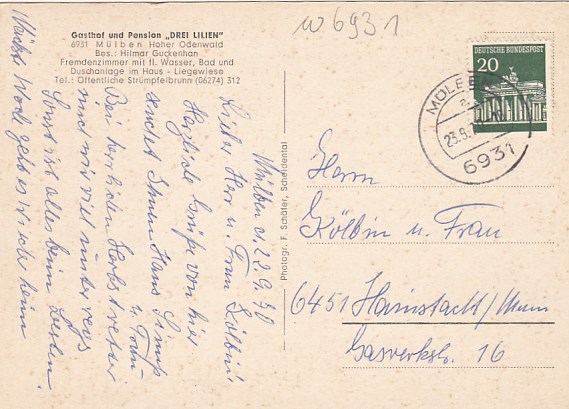 w 6931
Gasthof und Pension „DREI LILIEN"
6931 Mülben Hoher Odenwald
Bes.: Hilmar Guckenhan
Fremdenzimmer mit fl. Wasser, Bad und
Duschanlage im Haus - Liegewiese
Tel.: Öffentliche Strümpfelbrunn (06274) 312
DEUTSCHE BUNDESPOST
20
MÜLBEN
23.9.
6931
Mülben d. 22.9.70
Lieber Herr u. Frau Kölbin!
Herzliche Grüße von hier
sendet Ihnen Hans
u. Frau
Bei herrlichem Herbstwetter
sind wir viel unterwegs
Sonst ist alles beim
Nächste Woche geht es wieder heim
Photogr. F. Schäfer, Scheidental
Herrn
Kölbin u. Frau
6451 Hainstadt/Main
Gaswerkstr. 16